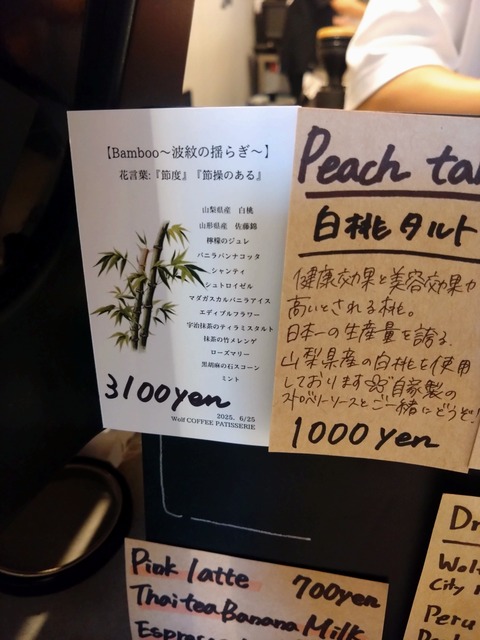 【Bamboo～波紋の揺らぎ～】
花言葉:『節度』『節操のある』
山梨県産 白桃
山形県産 佐藤錦
檸檬のジュレ
バニラパンナコッタ
シャンティ
シュトロイゼル
マダガスカルバニラアイス
エディブルフラワー
宇治抹茶のティラミスタルト
抹茶の竹メレンゲ
ローズマリー
黒胡麻の石スコーン
ミント
3100yen
2025. 6/25
Wolf COFFEE PATISSERIE
Peach ta
白桃タルト
健康効果と美容効果が
高いとされる桃。
日本一の生産量を誇る
山梨県産の白桃を使用
しております 自家製の
ストロベリーソースとご一緒にどうぞ!
1000yen
Pink latte 700yen
Thai tea Banana Milk
Espresso
Dr
Wol
City
Peru